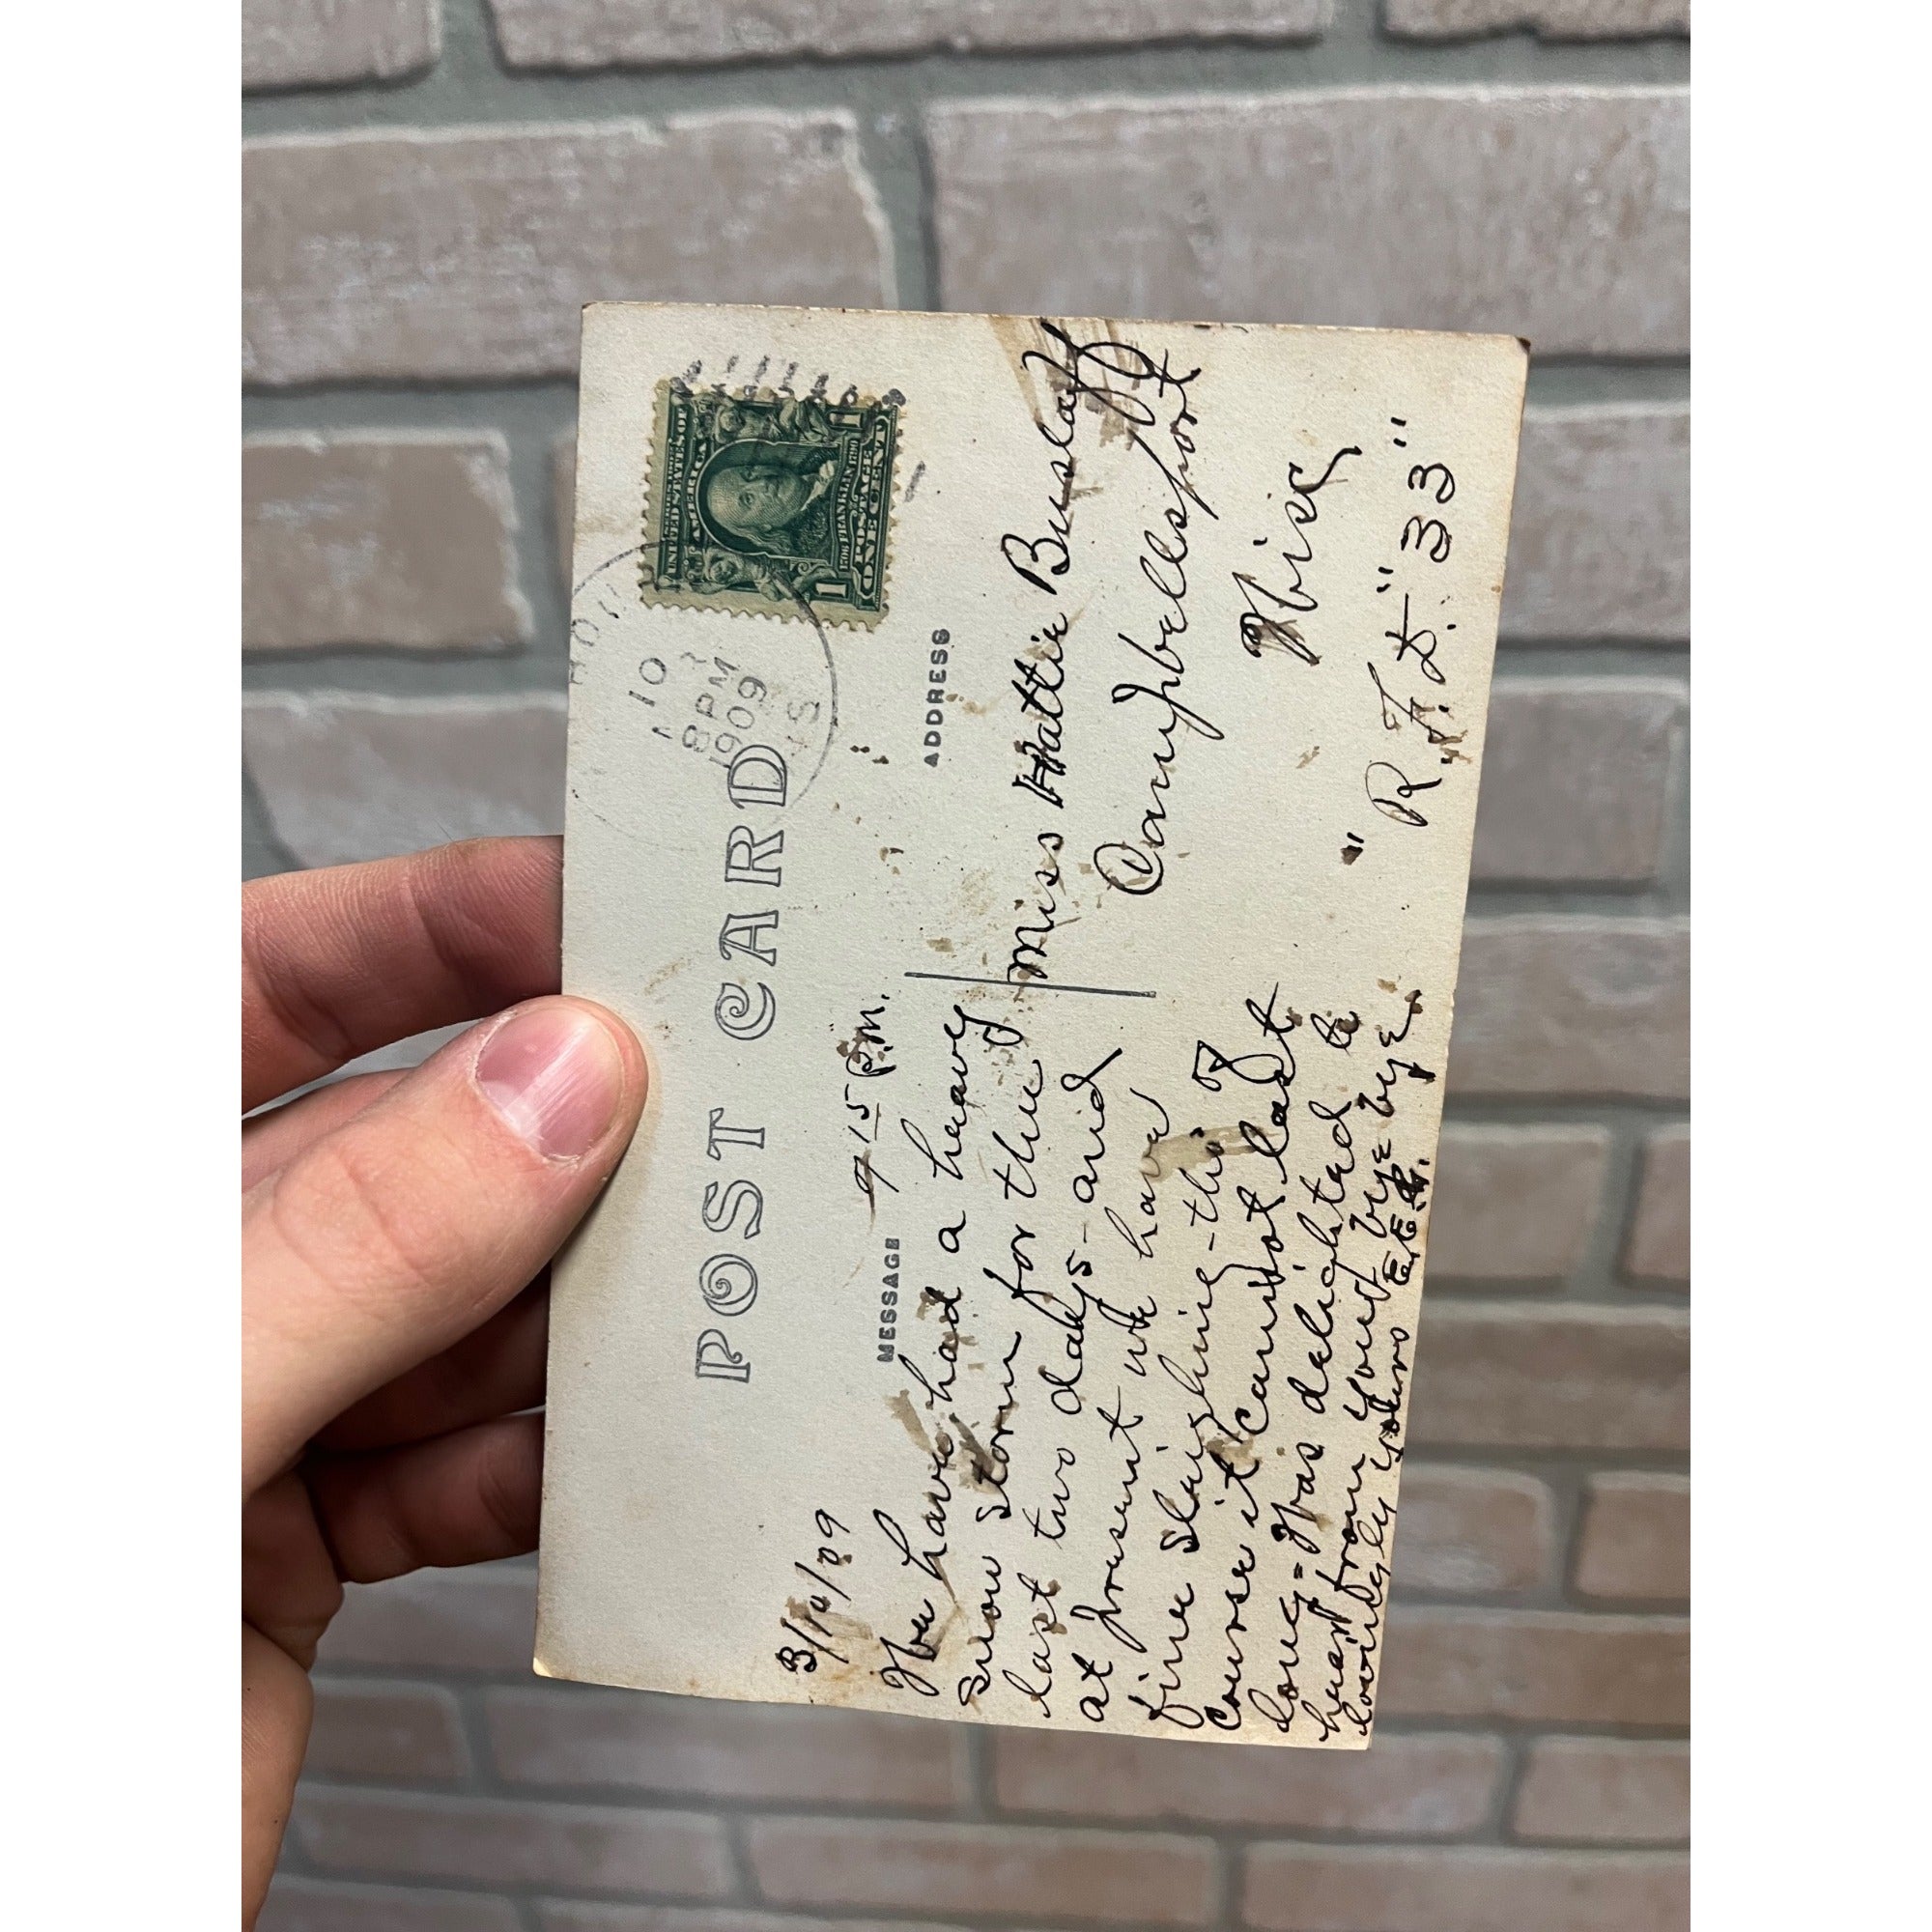 POST CARD
10
8 PM
1909
UNITED STATES OF
AMERICA
1706 FRANKLIN 1790
POSTAGE
1 ONE CENT 1
3/10/09
MESSAGE
9 15 P.M.
We have had a heavy
snow storm for the
last two days - and
at present we have
fine sleighing - tho' of
course it cannot last
long = Was delighted to
hear from you
lovingly yours
bye bye
ADDRESS
Miss Hattie Buslaff
Campbellsport
Wisc,
" R. F. D." "33"